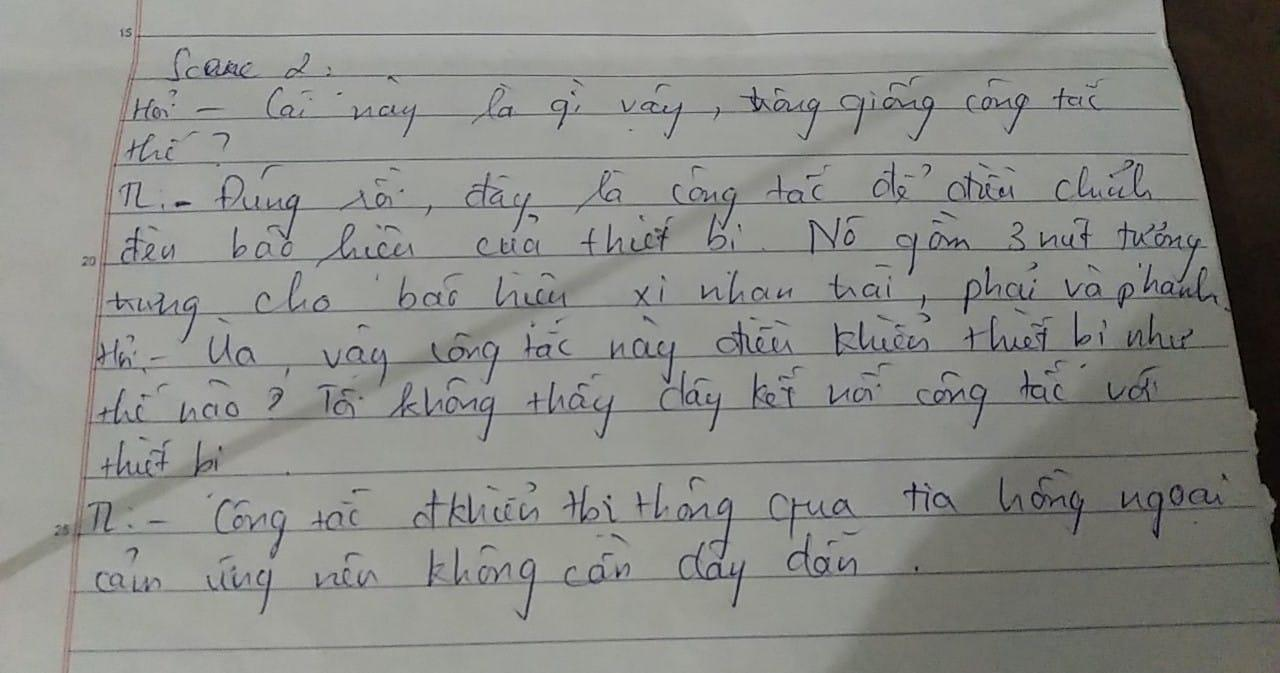 15
Scane 2:
Hỏi - Cái này là gì vậy, trông giống công tắc
thế?
TL:- Đúng rồi, đây là công tắc để điều chỉnh
đèn báo hiệu của thiết bị. Nó gồm 3 nút tượng
20
trưng cho báo hiệu xi nhan trái, phải và phanh.
Hỏi:- Ủa, vậy công tắc này điều khiển thiết bị như
thế nào? Tôi không thấy dây kết nối công tắc với
thiết bị.
25 TL:- Công tắc đkhiển tbị thông qua tia hồng ngoại
cảm ứng nên không cần dây dẫn.